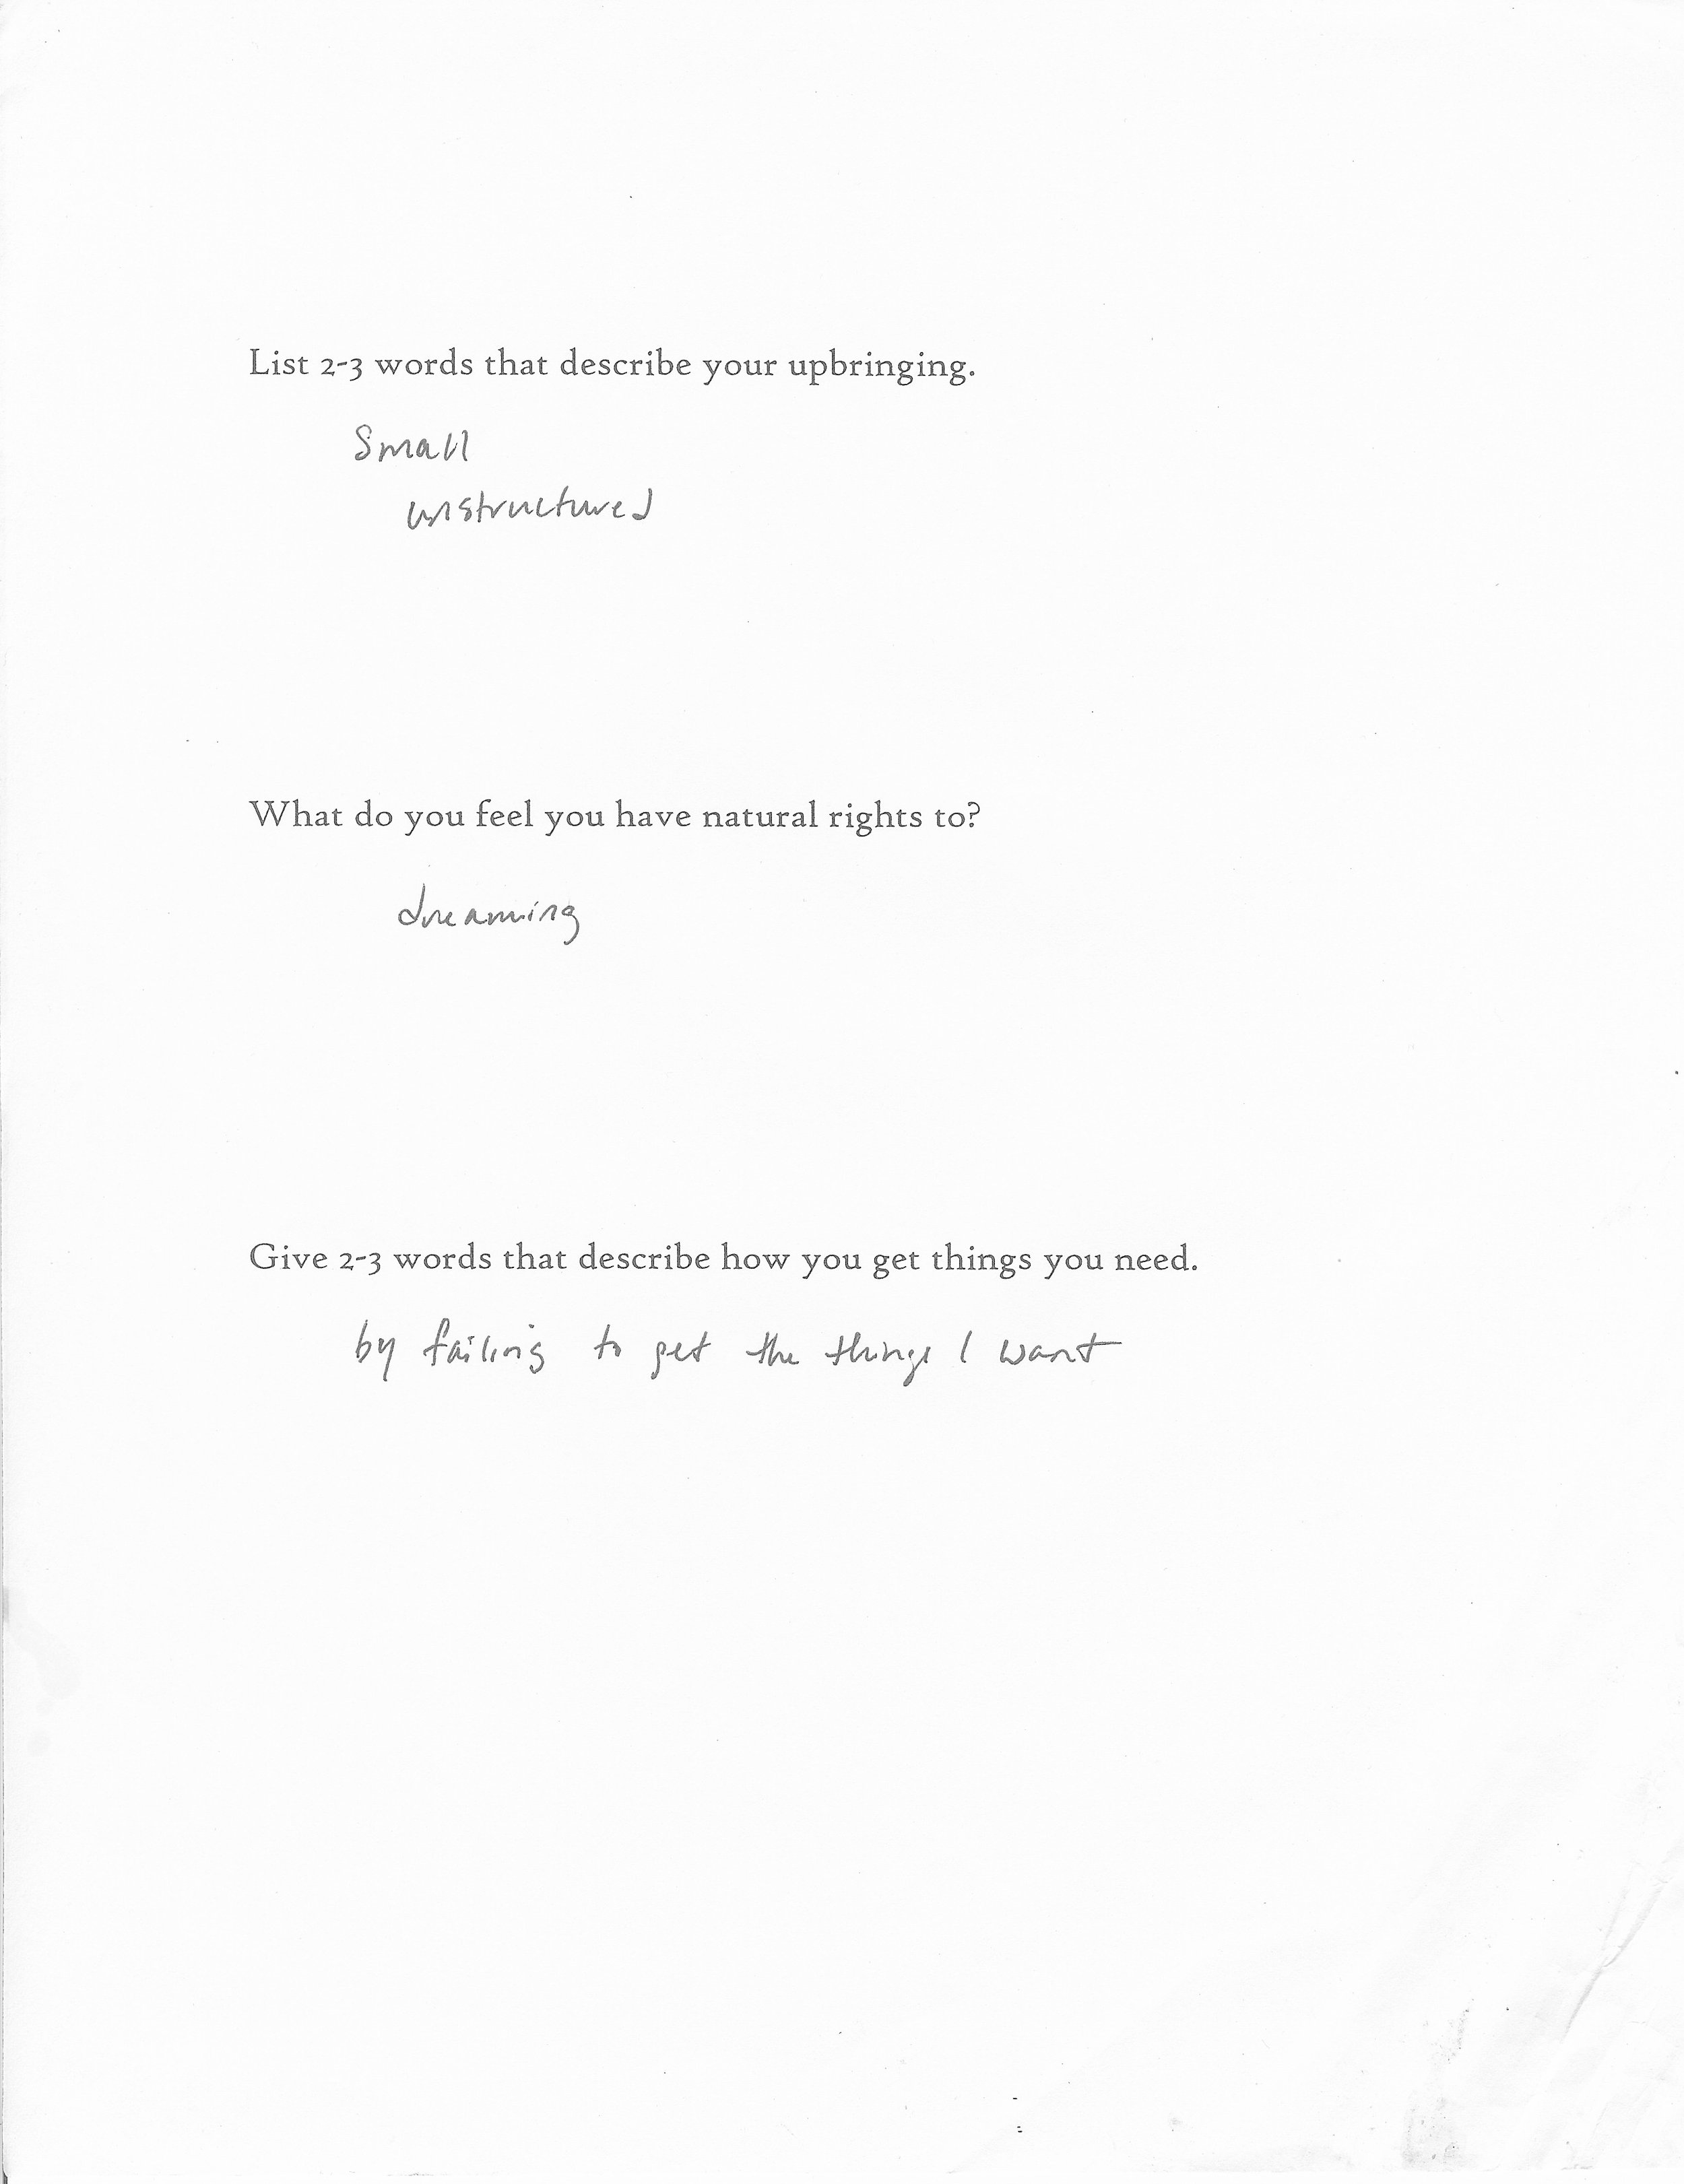 List 2-3 words that describe your upbringing.
Small
unstructured
What do you feel you have natural rights to?
dreaming
Give 2-3 words that describe how you get things you need.
by failing to get the things I want